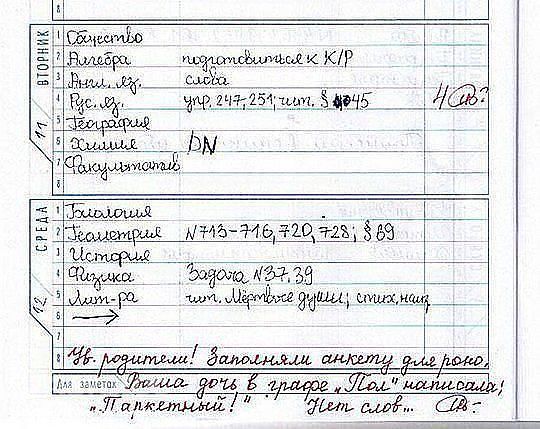 8
ВТОРНИК
11
1 Общество
2 Алгебра подготовиться к К/Р
3 Англ. яз. слова
4 Рус. яз. упр. 247, 251; чит. § 45 4
5 География
6 Химия
7 Факультатив
8
СРЕДА
12
1 Биология
2 Геометрия N713-716, 720, 728; § 69
3 История
4 Физика Задача N37, 39
5 Лит-ра чит. Мёртвые души; стих. наиз
6 →
7
8 Ув. родители! Заполняли анкету для роно.
Для заметок Ваша дочь в графе „Пол" написала;
„Паркетный!" Нет слов...